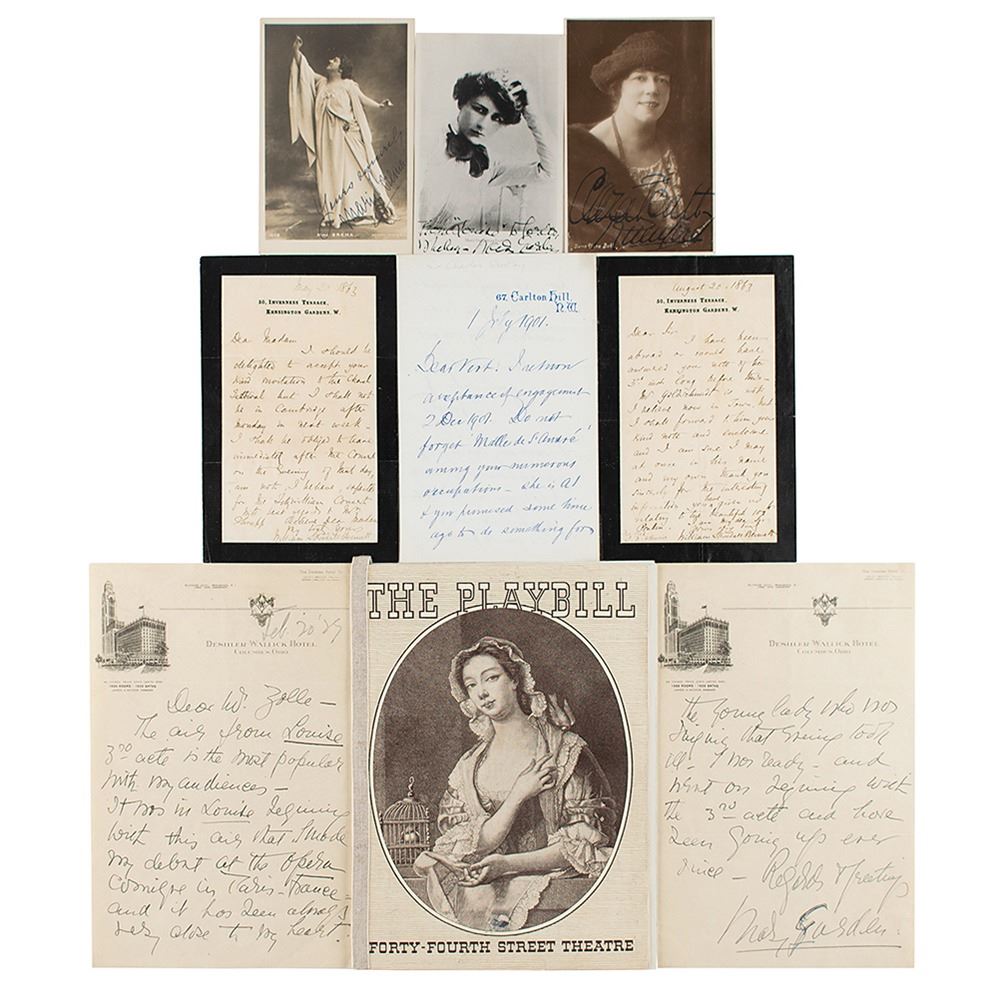 Yours sincerely
Marie Brema
Miss BREMA
Mary Garden
Clara Butt
May 20 1863
50, INVERNESS TERRACE,
KENSINGTON GARDENS, W.
Dear Madam
I should be
delighted to accept your
kind invitation to the Choral
Festival but I shall not
be in Cambridge after
Monday in next week –
I shall be obliged to leave
immediately after the Concert
on the Evening of that day
am not I believe expected
for the Fitzwilliam Concert
William Sterndale Bennett
67, Carlton Hill,
N.W.
1 July 1901.
Dear Vert: I return
acceptance of engagement
2 Dec 1901. Do not
forget 'Mdlle de St André'
among your numerous
occupations – she is A1
& you promised some time
ago to do something for
August 20. 1863
50, INVERNESS TERRACE,
KENSINGTON GARDENS, W.
Dear Sir
I have been
abroad or would have
answered your note of the
3rd inst long before this –
Mr Goldschmidt is not
I believe now in Town, but
I shall forward to him your
kind note and enclosure
and I am sure I may
at once in his name
and my own thank you
sincerely for the interesting
information you have given us
William Sterndale Bennett
DESHLER-WALLICK HOTEL
COLUMBUS, OHIO
1000 ROOMS - 1000 BATHS
Feb. 20 '29
Dear Mr. Zolle –
The air from Louise
3rd acte is the most popular
with my audiences –
It was in Louise beginning
with this air that I made
my debut at the Opera
Comique in Paris – France –
and it has been always
very close to my heart!
THE PLAYBILL
FORTY-FOURTH STREET THEATRE
DESHLER-WALLICK HOTEL
COLUMBUS, OHIO
1000 ROOMS - 1000 BATHS
The young lady who was
singing that evening took
ill – I was ready – and
went on beginning with
the 3rd acte and have
been going up ever
since – Regards & greetings
Mary Garden.